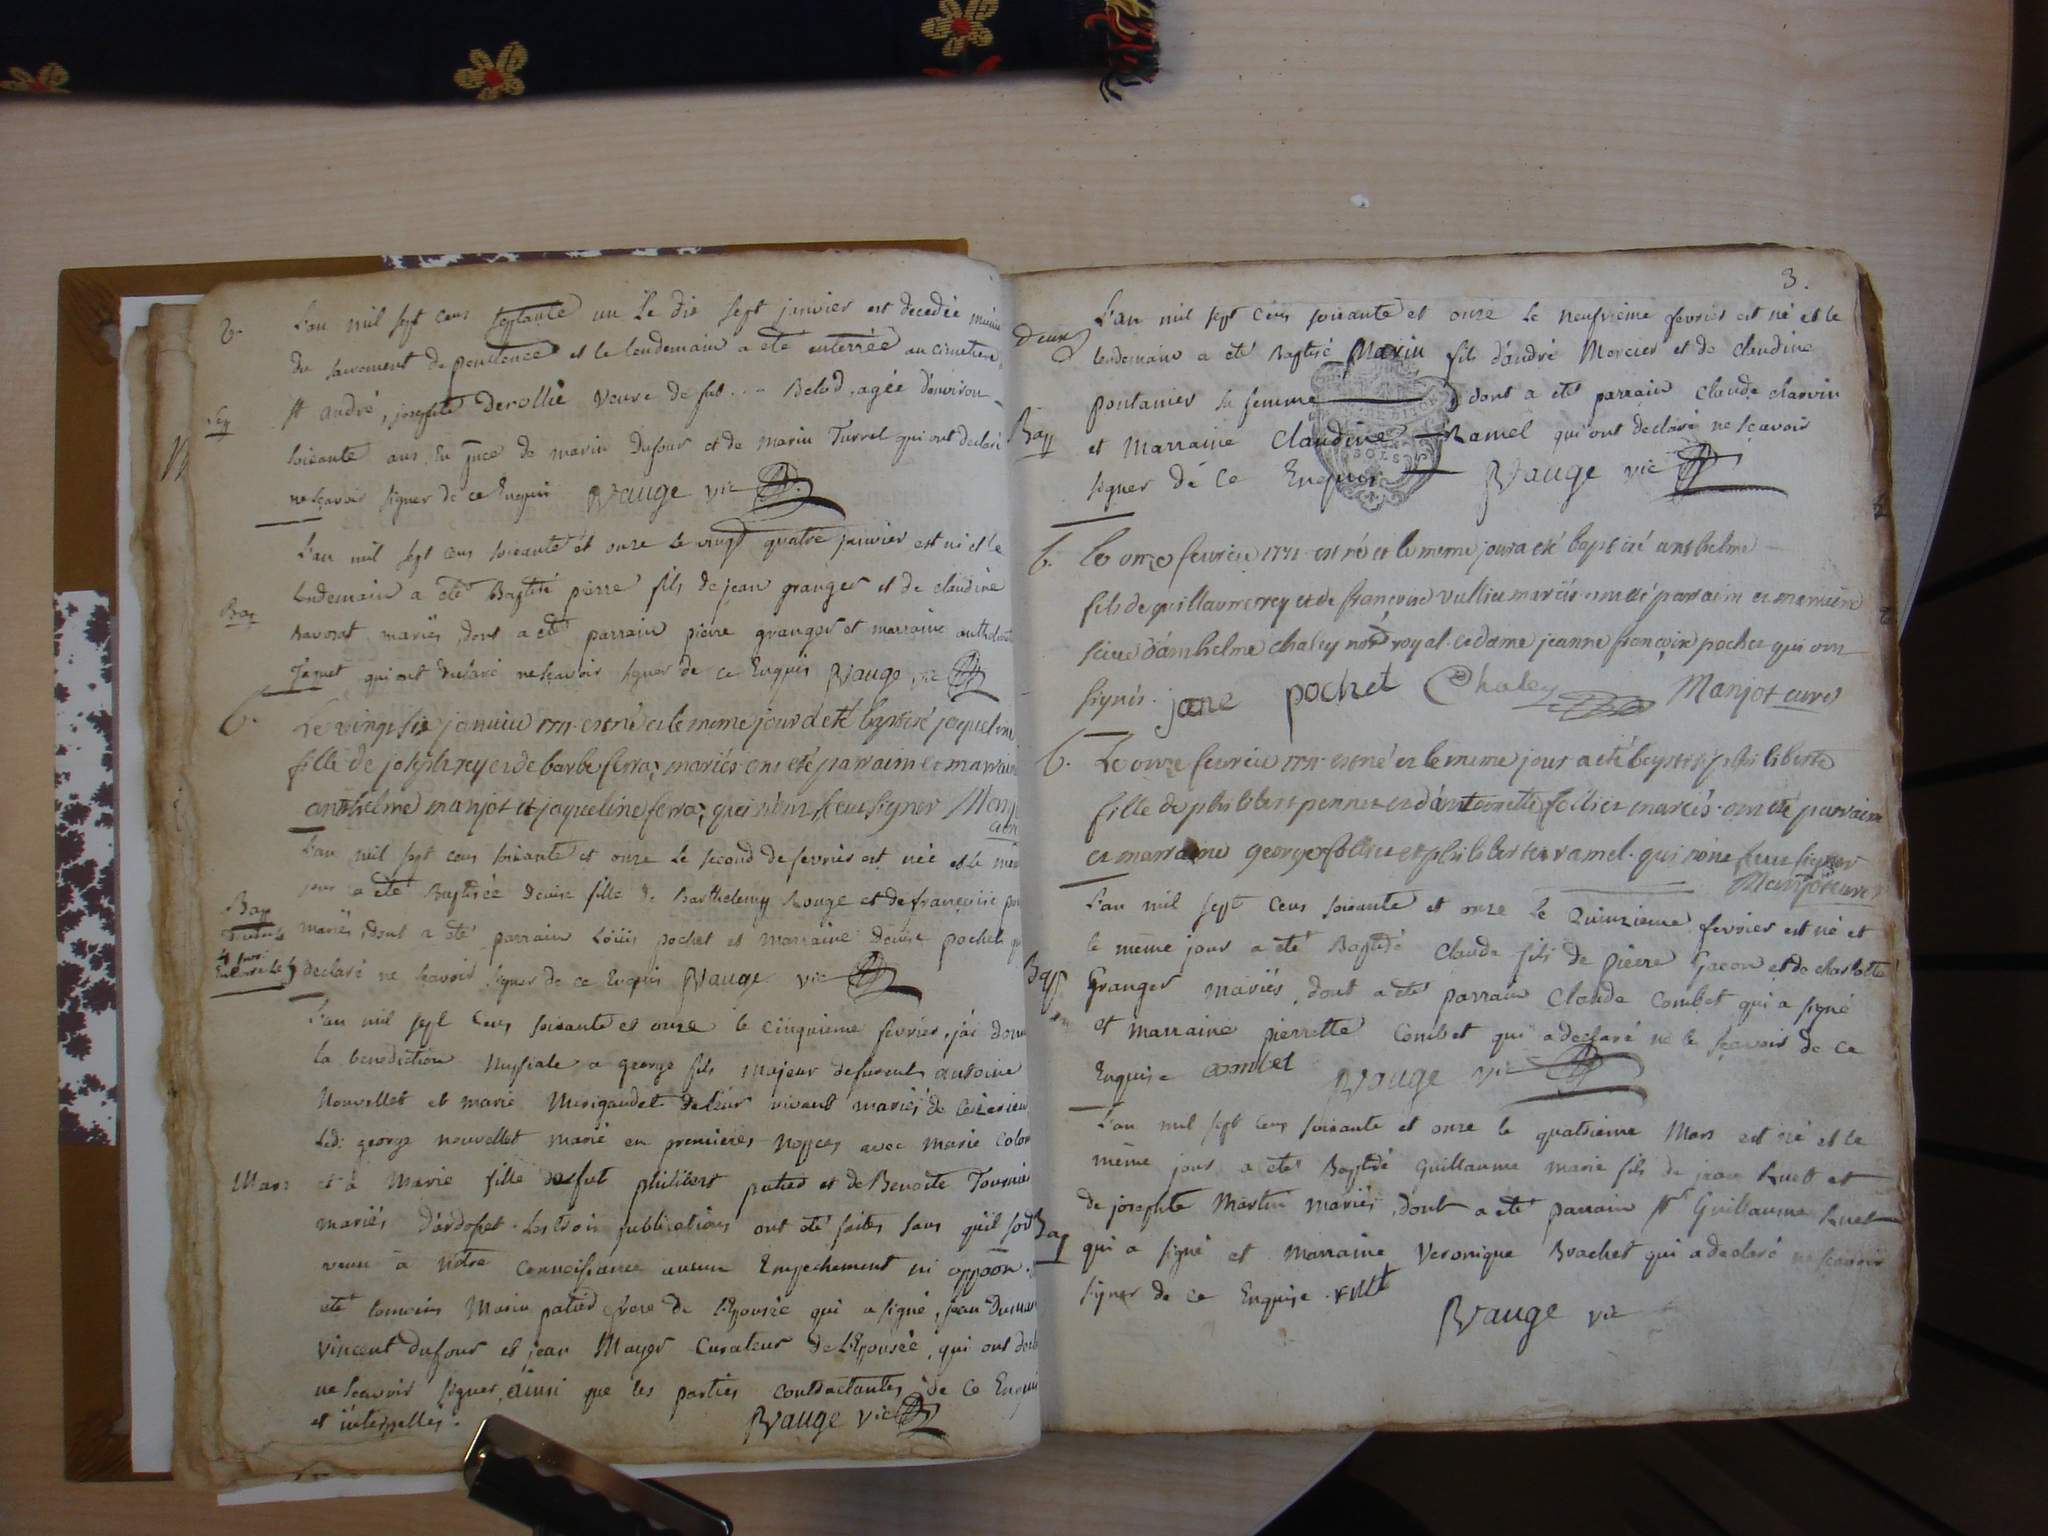 L'an mil sept cens septante un le dix sept janvier est decedée munie
du sacrement de penitence et le lendemain a été enterrée au cimetiere
St andré, josephte Derollié veuve de fut . . . Belod, agée d'environ
Sep
soixante ans. En pnce de marin Dufour et de marin Turrel qui ont declaré
ne sçavoir signer de ce Enquis RVauge vic
L'an mil sept cens soixante et onze le vingt quatre janvier est né et le
lendemain a été Baptisé pierre fils de jean granger et de claudine
Bap
mariés, dont a été parrain pierre granger et marraine
qui ont declaré ne sçavoir signer de ce Enquis RVauge vic
b.
Le vingt six janvier 1771 est né et le meme jour a été baptisé jaqueline
fille de joseph rey et de barbe ferraz mariés ont été parrain et marraine
anthelme manjot et jaqueline ferraz qui n'ont sceu signer
L'an mil sept cens soixante et onze le second de fevrier est née et le
jour a été Baptisée Denise fille de Barthelemy Rouge et de françoise
Bap
mariés, dont a été parrain Loüis pochet et marraine Denise pochet
declaré ne sçavoir signer de ce Enquis RVauge vic
L'an mil sept cens soixante et onze le cinquieme fevrier, j'ai donné
la benediction Nuptiale a george fils majeur defunents antoine
Nouvellet et marie de leur vivant mariés de
Led: george nouvellet marié en premieres nopces avec marie
Mars
et à Marie fille de fut philibert patied et de Benoite Tournier
mariés d'ardosset. Les trois publications ont été faites sans qu'il soit
venu à nôtre connoissance aucun Empechement ni oppôon.
été temoins Marin patied frere de l'Epousée qui a signé, jean
vincent dufour et jean Mayer Curateur de l'Epousée, qui ont
ne sçavoir signer, ainsi que les parties contractantes de ce Enquis
et interpellés. RVauge vic
3.
L'an mil sept cens soixante et onze le neufvième fevrier est né et le
Deux
lendemain a été Baptisé Marin fils d'andré Mercier et de claudine
pontanier sa femme dont a été parrain Claude charvin
Bap
et Marraine Claudine Ramel qui ont declaré ne sçavoir
signer de ce Enquis RVauge vic
b.
Le onze fevrier 1771 est né et le meme jour a été baptisé anthelme
fils de guillaume rey et de françoise vullien mariés. ont été parrain et marraine
sieur d'anthelme chaley notre royal et dame jeanne françoise pochet qui ont
signés. jane pochet Chaley Manjot curé
b.
Le onze fevrier 1771 est né et le meme jour a été baptisé philiberte
fille de philibert pennet et d'antoinette follier mariés. ont été parrain
et marraine george follier et philiberte ramel. qui n'ont sceu signer
Manjot curé
L'an mil sept cens soixante et onze le Quinzieme fevrier est né et
le même jour a été Baptisé Claude fils de pierre Gacon et de charlotte
Bap
Granger mariés, dont a été parrain Claude Combet qui a signé
et marraine pierrette Combet qui a declaré ne le sçavoir de ce
Enquise combet RVauge vic
L'an mil sept cens soixante et onze le quatrieme Mars est né et le
même jour a été Baptisé Guillaume marie fils de jean Ruet et
de josephte Martin mariés, dont a été parrain Sr Guillaume Ruet
Bap
qui a signé et Marraine Veronique Brachet qui a declaré ne sçavoir
signer de ce Enquise. RVauge vic